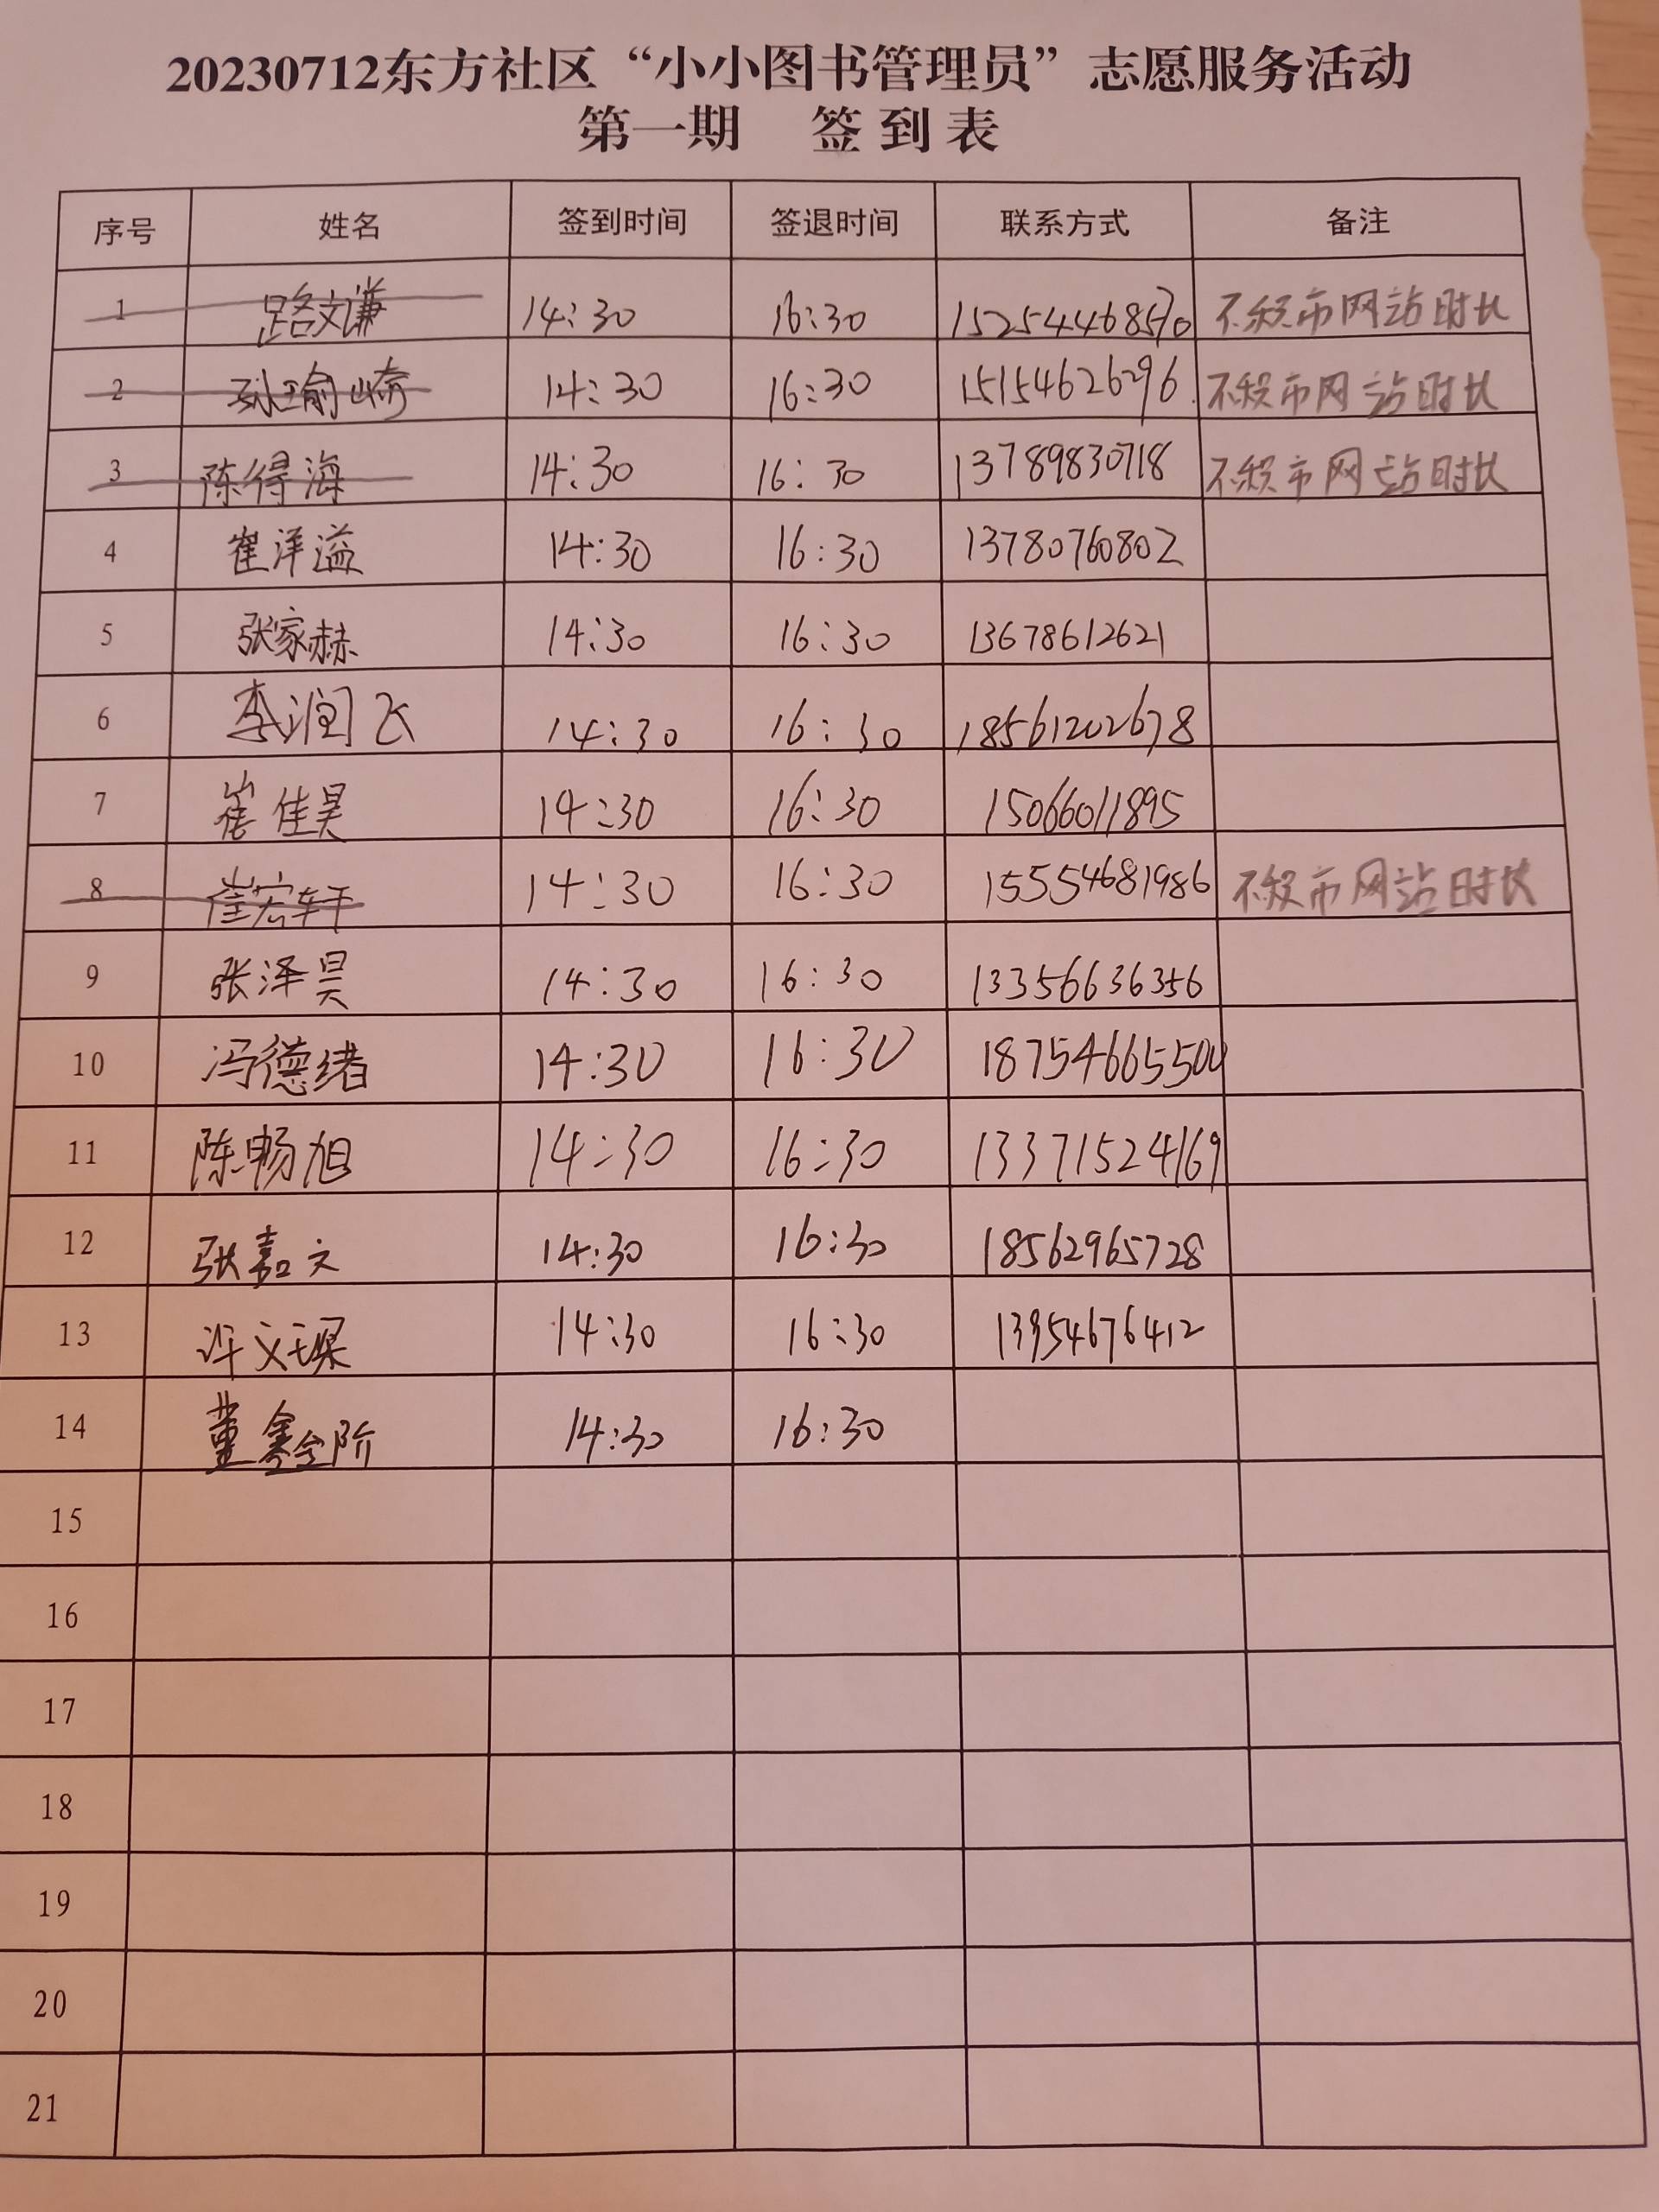 20230712东方社区“小小图书管理员”志愿服务活动
第一期 签到表
序号 姓名 签到时间 签退时间 联系方式 备注
1 路文谦 14:30 16:30 15254468570 不积市网站时长
2 孙瑜崎 14:30 16:30 15154626296 不积市网站时长
3 陈得海 14:30 16:30 13789830718 不积市网站时长
4 崔洋溢 14:30 16:30 13780760802
5 张家赫 14:30 16:30 13678612621
6 李润飞 14:30 16:30 18561202678
7 崔佳昊 14:30 16:30 15066011895
8 崔宏轩 14:30 16:30 15554681986 不积市网站时长
9 张泽昊 14:30 16:30 13356636356
10 冯德绪 14:30 16:30 18754665504
11 陈畅旭 14:30 16:30 13371524169
12 张嘉文 14:30 16:30 18562965728
13 许文琛 14:30 16:30 13954676412
14 董鑫阶 14:30 16:30
15
16
17
18
19
20
21